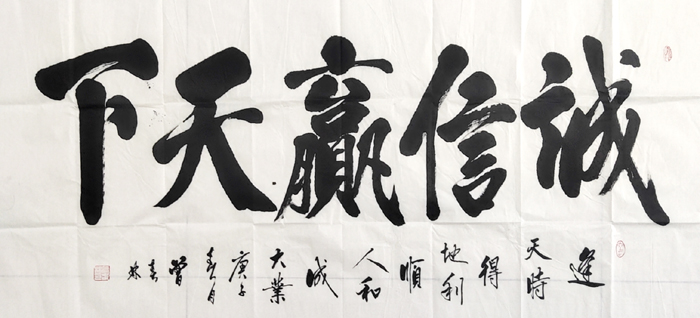 誠信贏天下
逢天時得地利順人和成大業
庚子春月